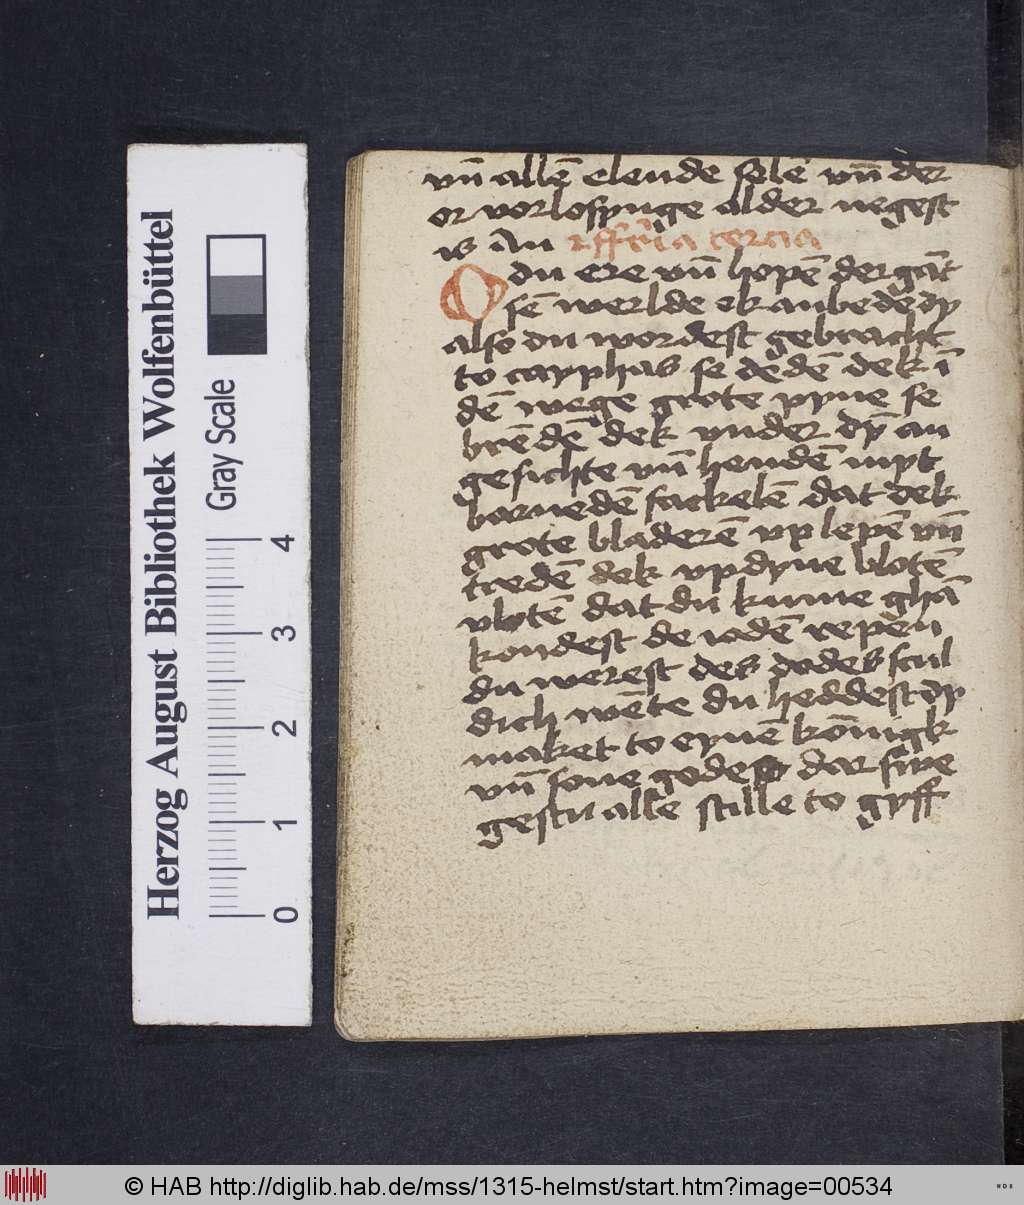 vn̄ allē elende sele vn̄ der
or vorlosynge alder negest
is an fferia tercia
O du ere vn̄ hopē der gāt
sē werlde ek anbede dy
also du wordest gebracht
to cayphas se dedē dek ī
dē wege grote pyne se
brēdē dek vnder dȳ an
gesichte vn̄ hendē myt
barnedē fackelē dat dek
grote bladerē vp lepē vn̄
tredē dek vp dyne blotē
vlotē dat du kume ghā
kondest de iodē repen
du werest des dodes scul
dich wēte du heddest dy
maket to eynē kōnigk
vn̄ sone godes dar swe
gestu alle stille to gyff
Herzog August Bibliothek Wolfenbüttel
Gray Scale
0 1 2 3 4
© HAB http://diglib.hab.de/mss/1315-helmst/start.htm?image=00534